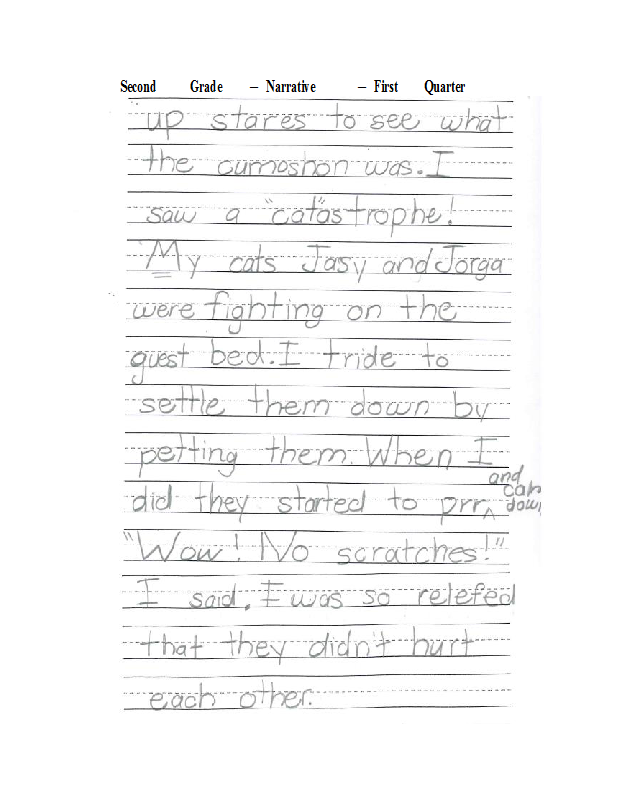 Second Grade – Narrative – First Quarter
up stares to see what
the cumoshon was. I
saw a "catastrophe!
My cats Jasy and Jorga
were fighting on the
guest bed. I tride to
settle them down by
petting them. When I
did they started to prr and calm down
"Wow! No scratches!"
I said. I was so relefed
that they didn't hurt
each other.